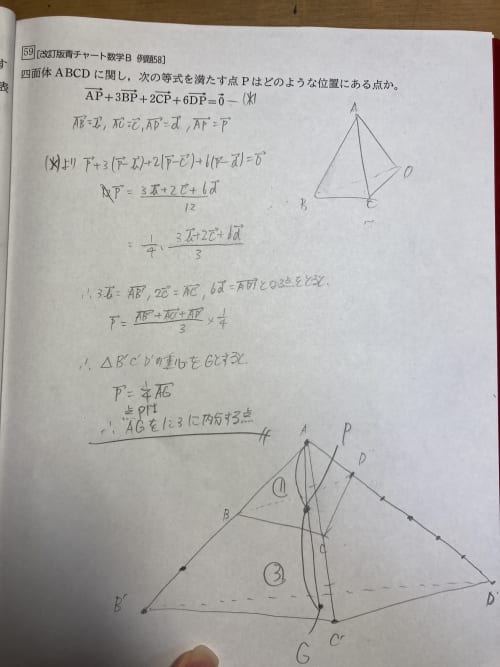 59 [改訂版青チャート数学B 例題58]
四面体 ABCD に関し，次の等式を満たす点 P はどのような位置にある点か。
AP→+3BP→+2CP→+6DP→=0→ ―(*)
AB→=b→, AC→=c→, AD→=d→, AP→=p→
(*)より p→+3(p→-b→)+2(p→-c→)+6(p→-d→)=0→
p→= (3b→+2c→+6d→)/12
= 1/4・(3b→+2c→+6d→)/3
∴3b→=AB'→, 2c→=AC'→, 6d→=AD'→となる3点をとると、
p→= (AB'→+AC'→+AD'→)/3 × 1/4
∴ △B'C'D'の重心をGとすると
p→=1/4 AG→
点Pは
∴ AGを1:3に内分する点
A
B
C
D
A
P
D
①
B
C
③
B'
D'
C'
G